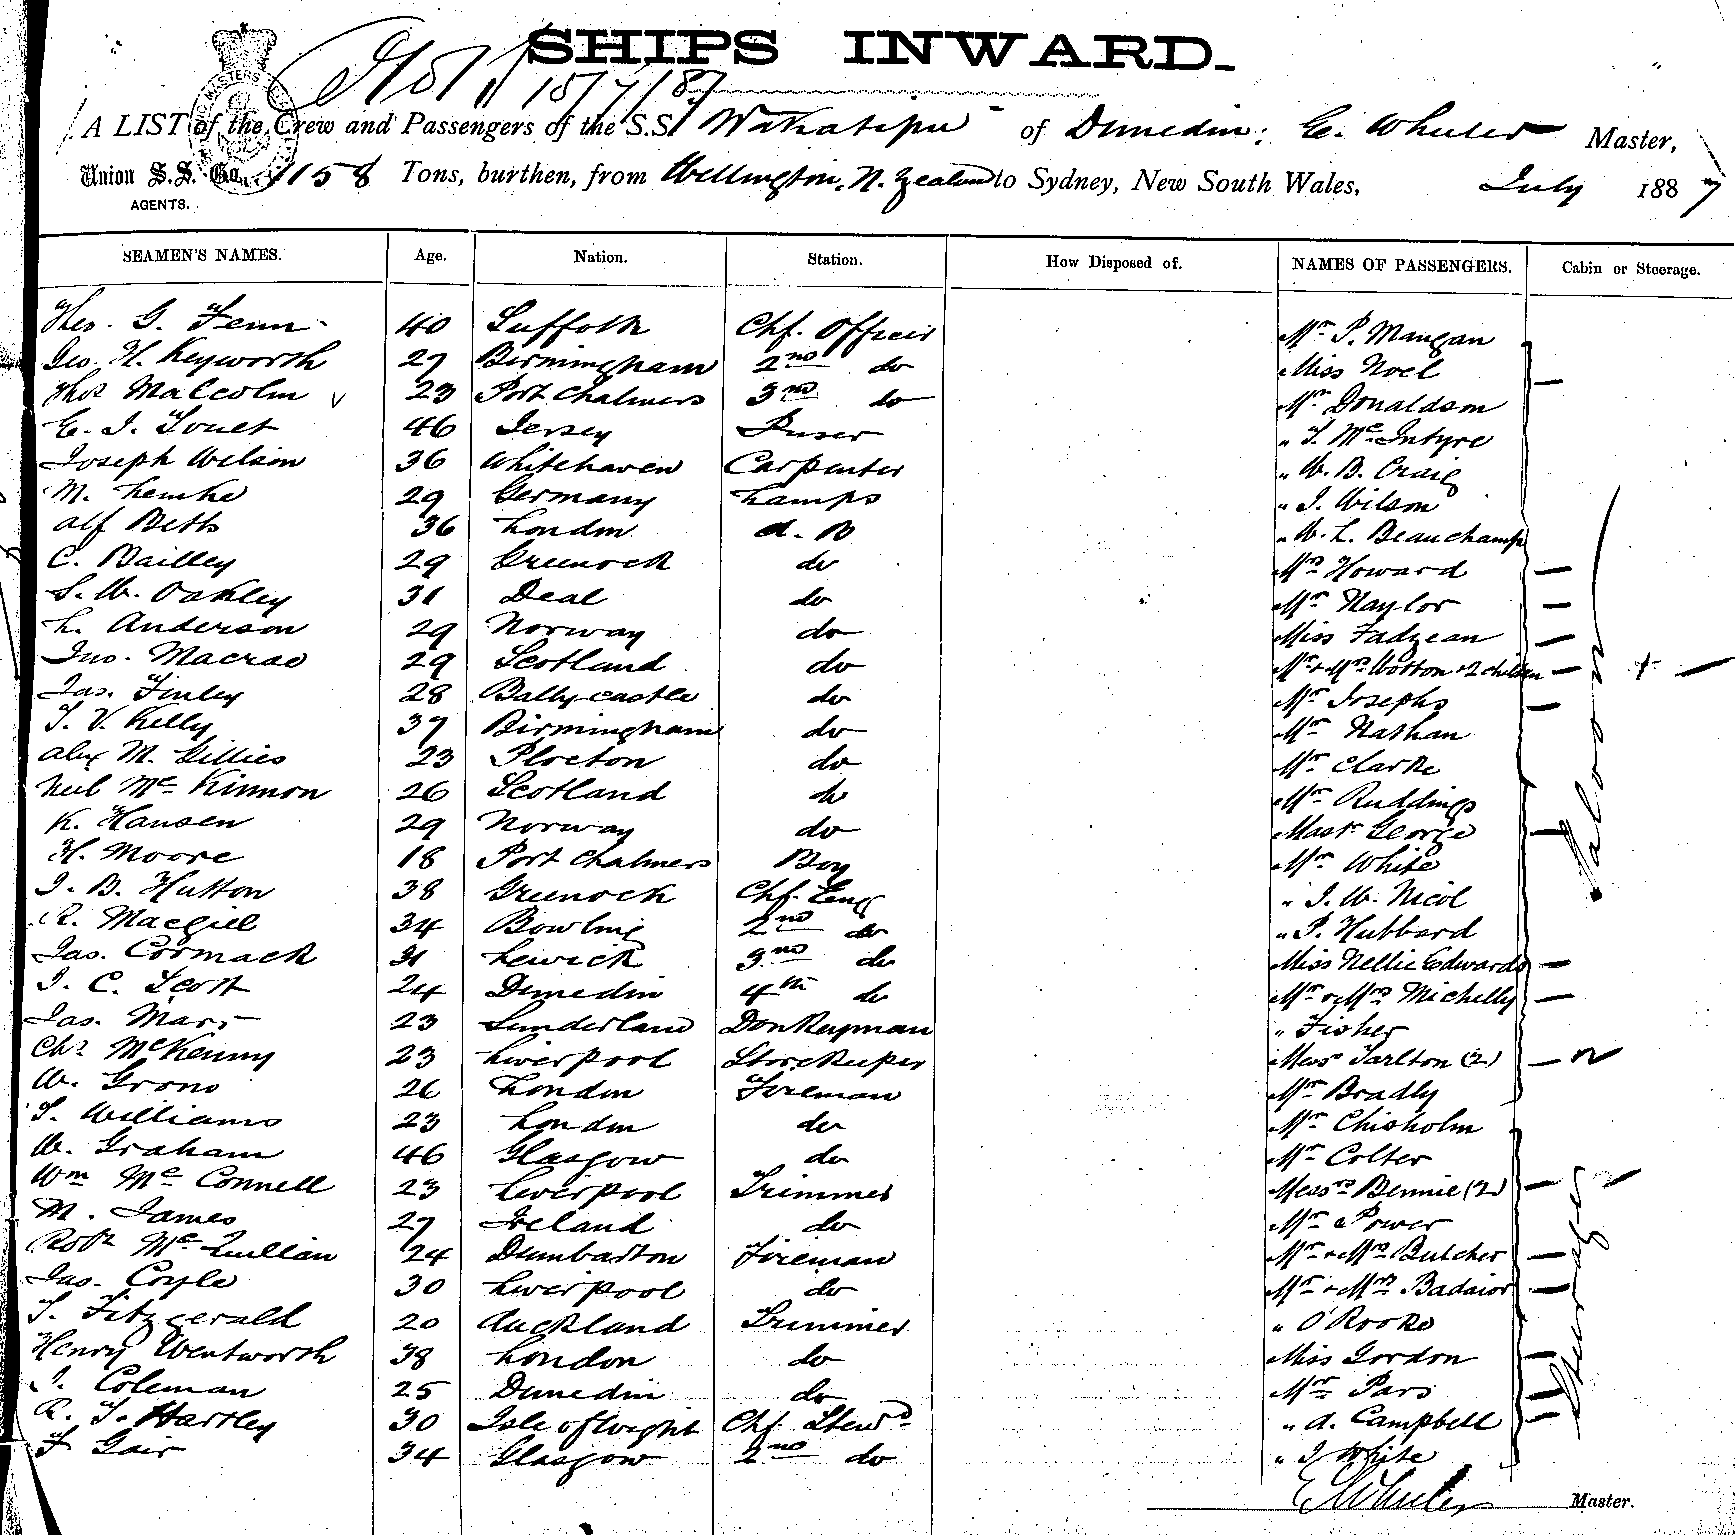 SHIPS INWARD.
15/7/87
A LIST of the Crew and Passengers of the S.S. Wakatipu of Dunedin; E. Wheeler Master,
Union S.S. Co. 1158 Tons, burthen, from Wellington, N. Zealand to Sydney, New South Wales, July 1887
AGENTS.
SEAMEN'S NAMES. Age. Nation. Station. How Disposed of. NAMES OF PASSENGERS. Cabin or Steerage.
Thos. G. Fenn 40 Suffolk Chf. Officer Mr P. Mangan
Geo. H. Keyworth 27 Birmingham 2nd do Miss Noel
Thos Malcolm 23 Port Chalmers 3rd do Mr Donaldson
E. J. Touet 46 Jersey Purser " T. McIntyre
Joseph Wilson 36 Whitehaven Carpenter " W. B. Craig
M. Lemke 29 Germany Lamps " J. Wilson
Alf Betts 36 London A.B " W. L. Beauchamp
C. Bailley 29 Greenock do Mrs Howard
S. W. Oakley 31 Deal do Mr Naylor
L. Anderson 29 Norway do Miss Fadzean
Jno. Macrae 29 Scotland do Mr & Mrs Wotton & 2 children
Jas. Finley 28 Bally-castle do Mr Josephs
T. V. Kelly 37 Birmingham do Mr Nathan
Alex M. Gillies 23 Plocton do Mr Clarke
Neil McKinnon 26 Scotland do Mr Ruddings
K. Hansen 29 Norway do Mastr George
H. Moore 18 Port Chalmers Boy Mr White
J. B. Hutton 38 Greenock Chf. Eng " J. W. Nicol
R. Macgill 34 Bowling 2nd do " P. Hubbard
Jas. Cormack 31 Lewick 3rd do Miss Nellie Edwards
J. C. Scott 24 Dunedin 4th do Mr & Mrs Michelly
Jas. Marr 23 Sunderland Donkeyman " Fisher
Chs McKenny 23 Liverpool Storekeeper Mess Tarlton (2)
W. Grono 26 London Fireman Mr Bradly
S. Williams 23 London do Mr Chisholm
W. Graham 46 Glasgow do Mr Colter
Wm McConnell 23 Liverpool Trimmer Messrs Bennie (2)
M. James 27 Ireland do Mr Power
Robt McQuillan 24 Dumbarton Fireman Mr & Mrs Butcher
Jas. Coyle 30 Liverpool do Mr & Mrs Badaior
T. Fitzgerald 20 Auckland Trimmer " O'Rooke
Henry Wentworth 38 London do Miss Gordon
J. Coleman 25 Dunedin do Mr Pars
R. T. Hartley 30 Isle of Wight Chf. Stewd " A. Campbell
F Gair 34 Glasgow 2nd do " J White
Saloon
Steerage
E Wheeler Master.